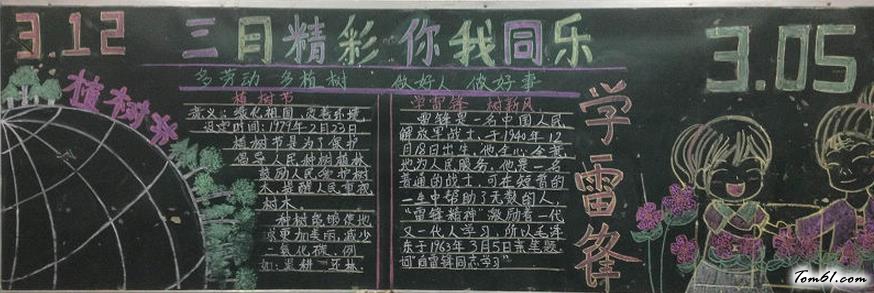 3.12
三月精彩 你我同乐
3.05
多劳动 多植树 做好人 做好事
植树节
植树节
意义：绿化祖国，改善环境，
设定时间：1979年2月23日
植树节是为了保护
倡导人民种树植林
鼓励人民爱护树
木，提醒人民重视
树木。
种树能够使地
球更加美丽，减少
二氧化碳，例
如：退耕还林
学雷锋 树新风
雷锋是一名中国人民
解放军战士，于1940年12
月18日出生，他全心全意
地为人民服务，他是一名
普通的战士，可在短暂的
一生中帮助了无数的人，
“雷锋精神”激励着一代
又一代人学习，所以毛泽
东于1963年3月5日亲笔题
词“向雷锋同志学习”
学雷锋
Tom61.com